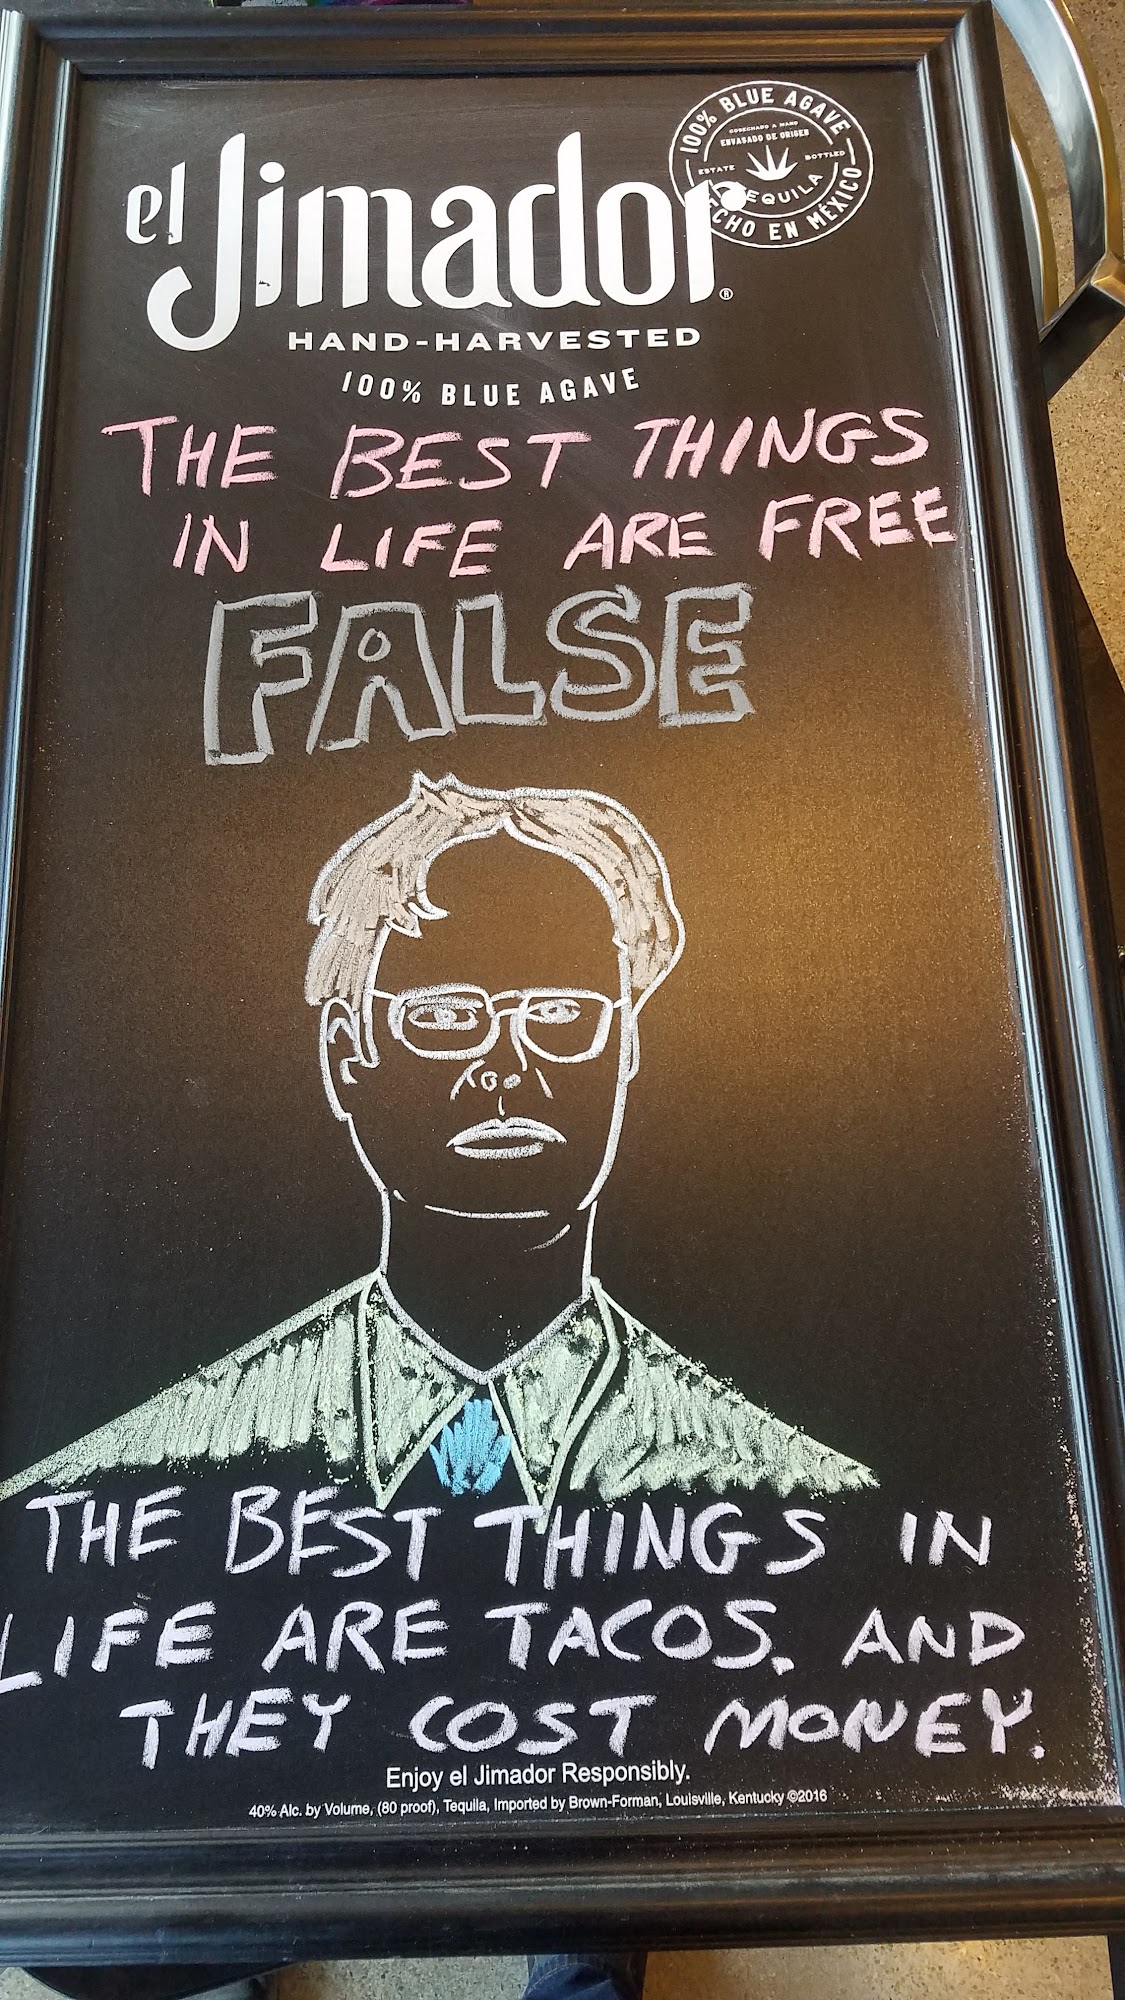 el Jimador®
100% BLUE AGAVE
COSECHADO A MANO
ENVASADO DE ORIGEN
ESTATE BOTTLED
TEQUILA
HECHO EN MÉXICO
HAND-HARVESTED
100% BLUE AGAVE
THE BEST THINGS
IN LIFE ARE FREE
FALSE
THE BEST THINGS IN
LIFE ARE TACOS. AND
THEY COST MONEY.
Enjoy el Jimador Responsibly.
40% Alc. by Volume, (80 proof), Tequila, Imported by Brown-Forman, Louisville, Kentucky ©2016